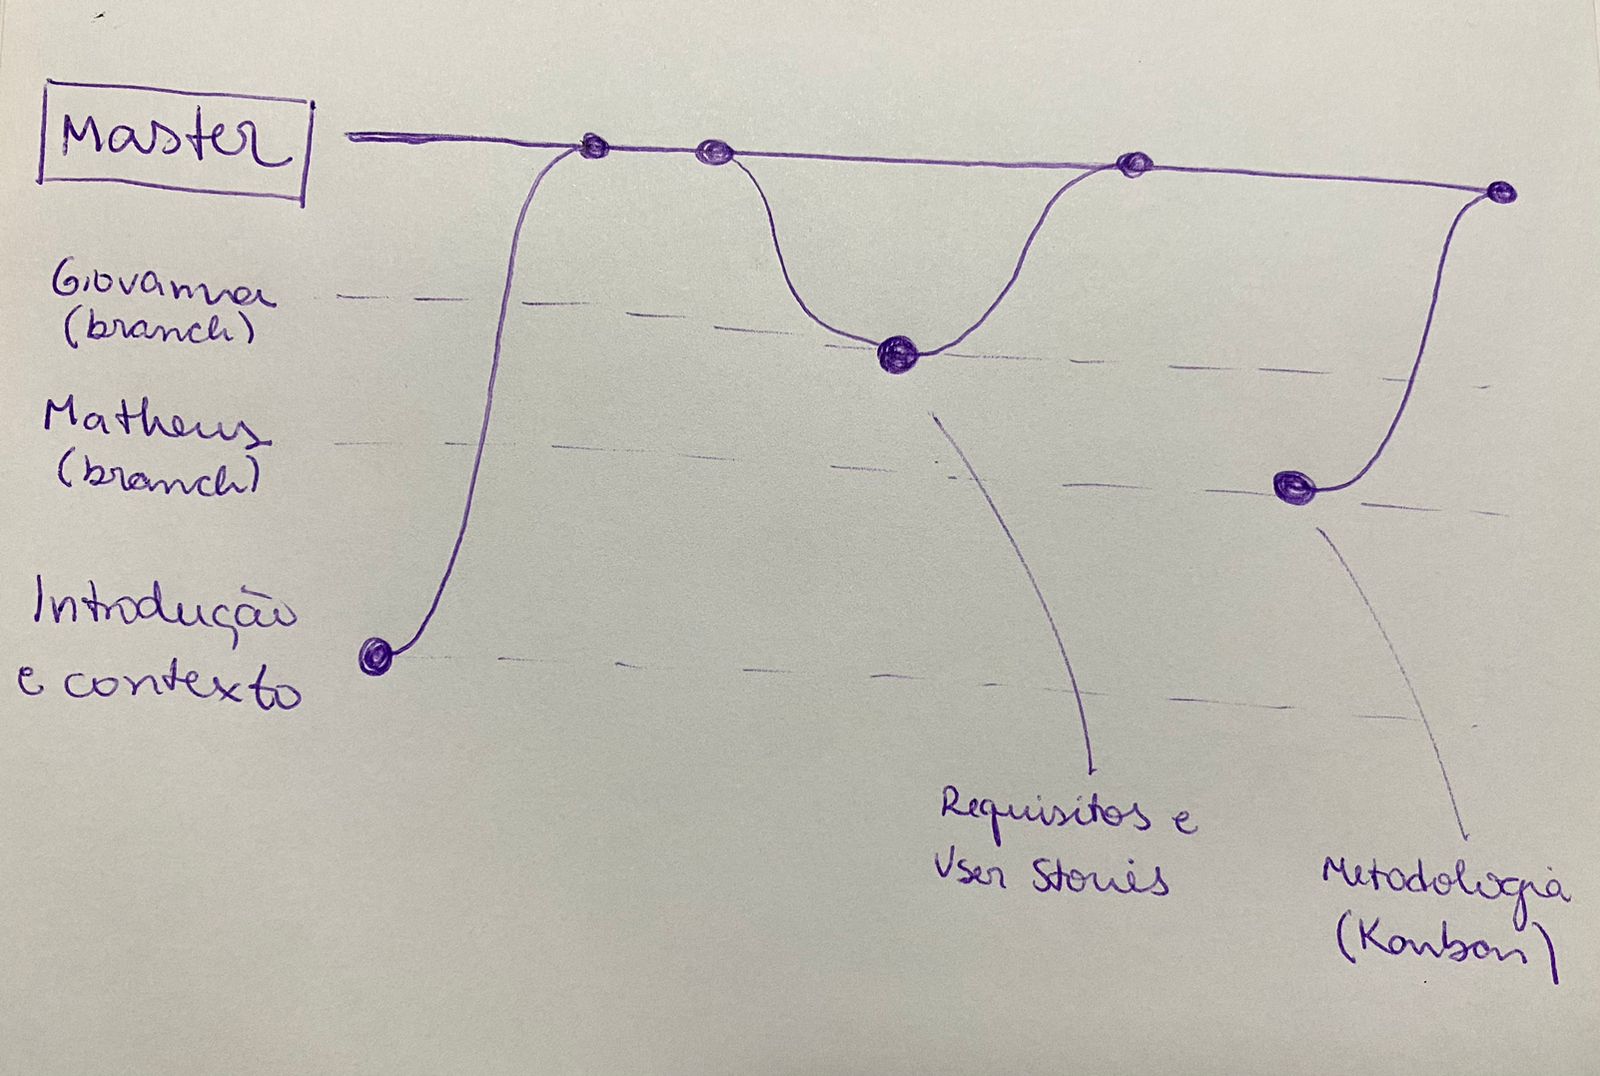 Master
Giovanna
(branch)
Matheus
(branch)
Introdução
e contexto
Requisitos e
User Stories
Metodologia
(Kanban)